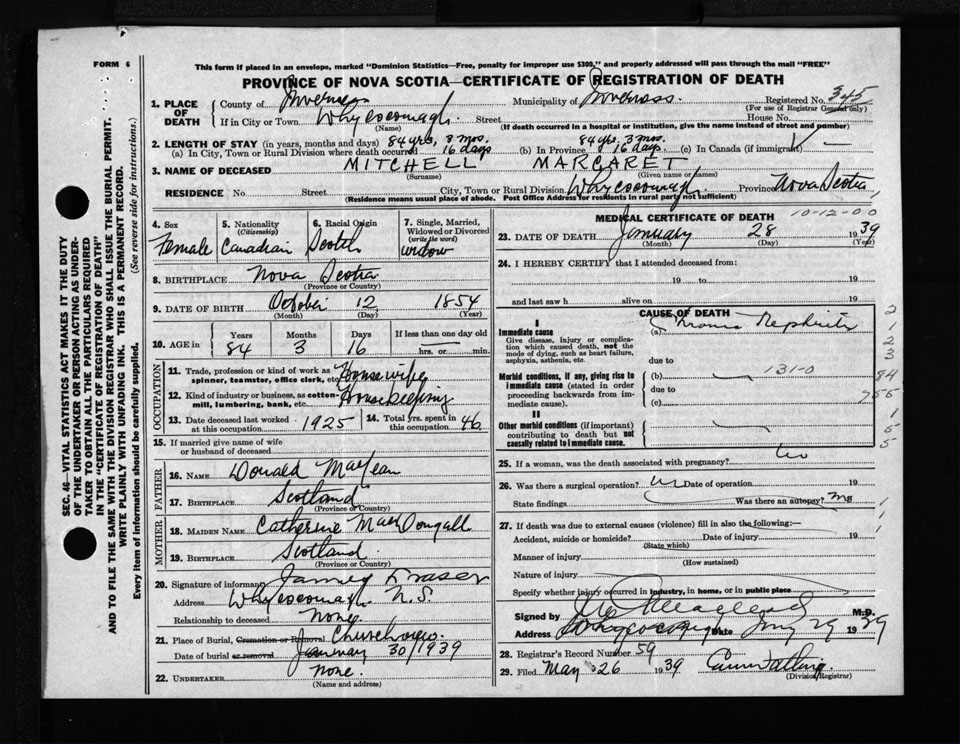 FORM 6
This form if placed in an envelope, marked "Dominion Statistics—Free, penalty for improper use $300," and properly addressed will pass through the mail "FREE"
PROVINCE OF NOVA SCOTIA—CERTIFICATE OF REGISTRATION OF DEATH
1. PLACE OF DEATH County of Inverness Municipality of Inverness. Registered No. 345
(For use of Registrar General only)
If in City or Town Whycocomagh. Street House No.
(Name) (If death occurred in a hospital or institution, give the name instead of street and number)
2. LENGTH OF STAY (in years, months and days) 84 yrs, 3 mos. 84 yrs, 3 mos.
(a) In City, Town or Rural Division where death occurred 16 days (b) In Province 16 days (c) In Canada (if immigrant) —
3. NAME OF DECEASED MITCHELL MARGARET
(Surname) (Given name or names)
RESIDENCE No. Street City, Town or Rural Division Whycocomagh. Province Nova Scotia
(Residence means usual place of abode. Post Office Address for residents in rural parts not sufficient)
4. Sex Female
5. Nationality (Citizenship) Canadian
6. Racial Origin Scotch
7. Single, Married, Widowed or Divorced (write the word) widow
8. BIRTHPLACE Nova Scotia
(Province or Country)
9. DATE OF BIRTH October 12 1854
(Month) (Day) (Year)
10. AGE in Years Months Days If less than one day old
84 3 16 hrs. or min.
OCCUPATION
11. Trade, profession or kind of work as spinner, teamster, office clerk, etc. Housewife
12. Kind of industry or business, as cotton-mill, lumbering, bank, etc. Housekeeping
13. Date deceased last worked at this occupation 1925 14. Total yrs. spent in this occupation 46
15. If married give name of wife or husband of deceased
FATHER
16. NAME Donald MacLean
17. BIRTHPLACE Scotland
(Province or Country)
MOTHER
18. MAIDEN NAME Catherine MacDougall
19. BIRTHPLACE Scotland.
(Province or Country)
20. Signature of informant James Fraser
Address Whycocomagh N.S.
Relationship to deceased None.
21. Place of Burial, Cremation or Removal Churchview.
Date of burial or removal January 30/1939
22. UNDERTAKER None.
(Name and address)
MEDICAL CERTIFICATE OF DEATH 10-12-00
23. DATE OF DEATH January 28 1939
(Month) (Day) (Year)
24. I HEREBY CERTIFY that I attended deceased from
19 to 19
and last saw h alive on 19
CAUSE OF DEATH
I
Immediate cause (a) Chronic Nephritis
Give disease, injury or complication which caused death, not the mode of dying, such as heart failure, asphyxia, asthenia, etc.
due to
Morbid conditions, if any, giving rise to immediate cause (stated in order proceeding backwards from immediate cause). (b) 131-0
due to
(c)
II
Other morbid conditions (if important) contributing to death but not causally related to immediate cause.
25. If a woman, was the death associated with pregnancy? No
26. Was there a surgical operation? No Date of operation 19
State findings Was there an autopsy? No
27. If death was due to external causes (violence) fill in also the following:—
Accident, suicide or homicide? Date of injury 19
(State which)
Manner of injury
(How sustained)
Nature of injury
Specify whether injury occurred in industry, in home, or in public place
Signed by M.D.
Address Whycocomagh Date 29 1939
28. Registrar's Record Number 59
29. Filed May 26 1939
(Division Registrar)
SEC. 46—VITAL STATISTICS ACT MAKES IT THE DUTY
OF THE UNDERTAKER OR PERSON ACTING AS UNDER-
TAKER TO OBTAIN ALL THE PARTICULARS REQUIRED
IN THE "CERTIFICATE OF REGISTRATION OF DEATH"
AND TO FILE THE SAME WITH THE DIVISION REGISTRAR WHO SHALL ISSUE THE BURIAL PERMIT.
WRITE PLAINLY WITH UNFADING INK. THIS IS A PERMANENT RECORD.
Every item of information should be carefully supplied. (See reverse side for instructions.)